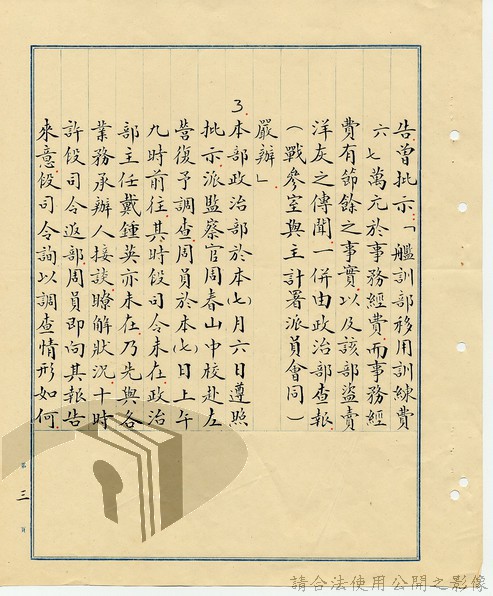 告曾批示「艦訓部移用訓練費
六七萬元於事務經費而事務經
費有節餘之事實以及該部盜賣
洋灰之傳聞一併由政治部查報
(戰參室與主計署派員會同)
嚴辦」
3.本部政治部於本(七)月六日遵照
批示派監察官周春山中校赴左
營復予調查周員於本(七)日上午
九時前往其時段司令未在政治
部主任戴鍾英亦未在乃先與各
業務承辦人接談瞭解狀況.十時
許段司令返部周員即向其報告
來意段司令詢以調查情形如何.
第三頁
請合法使用公開之影像